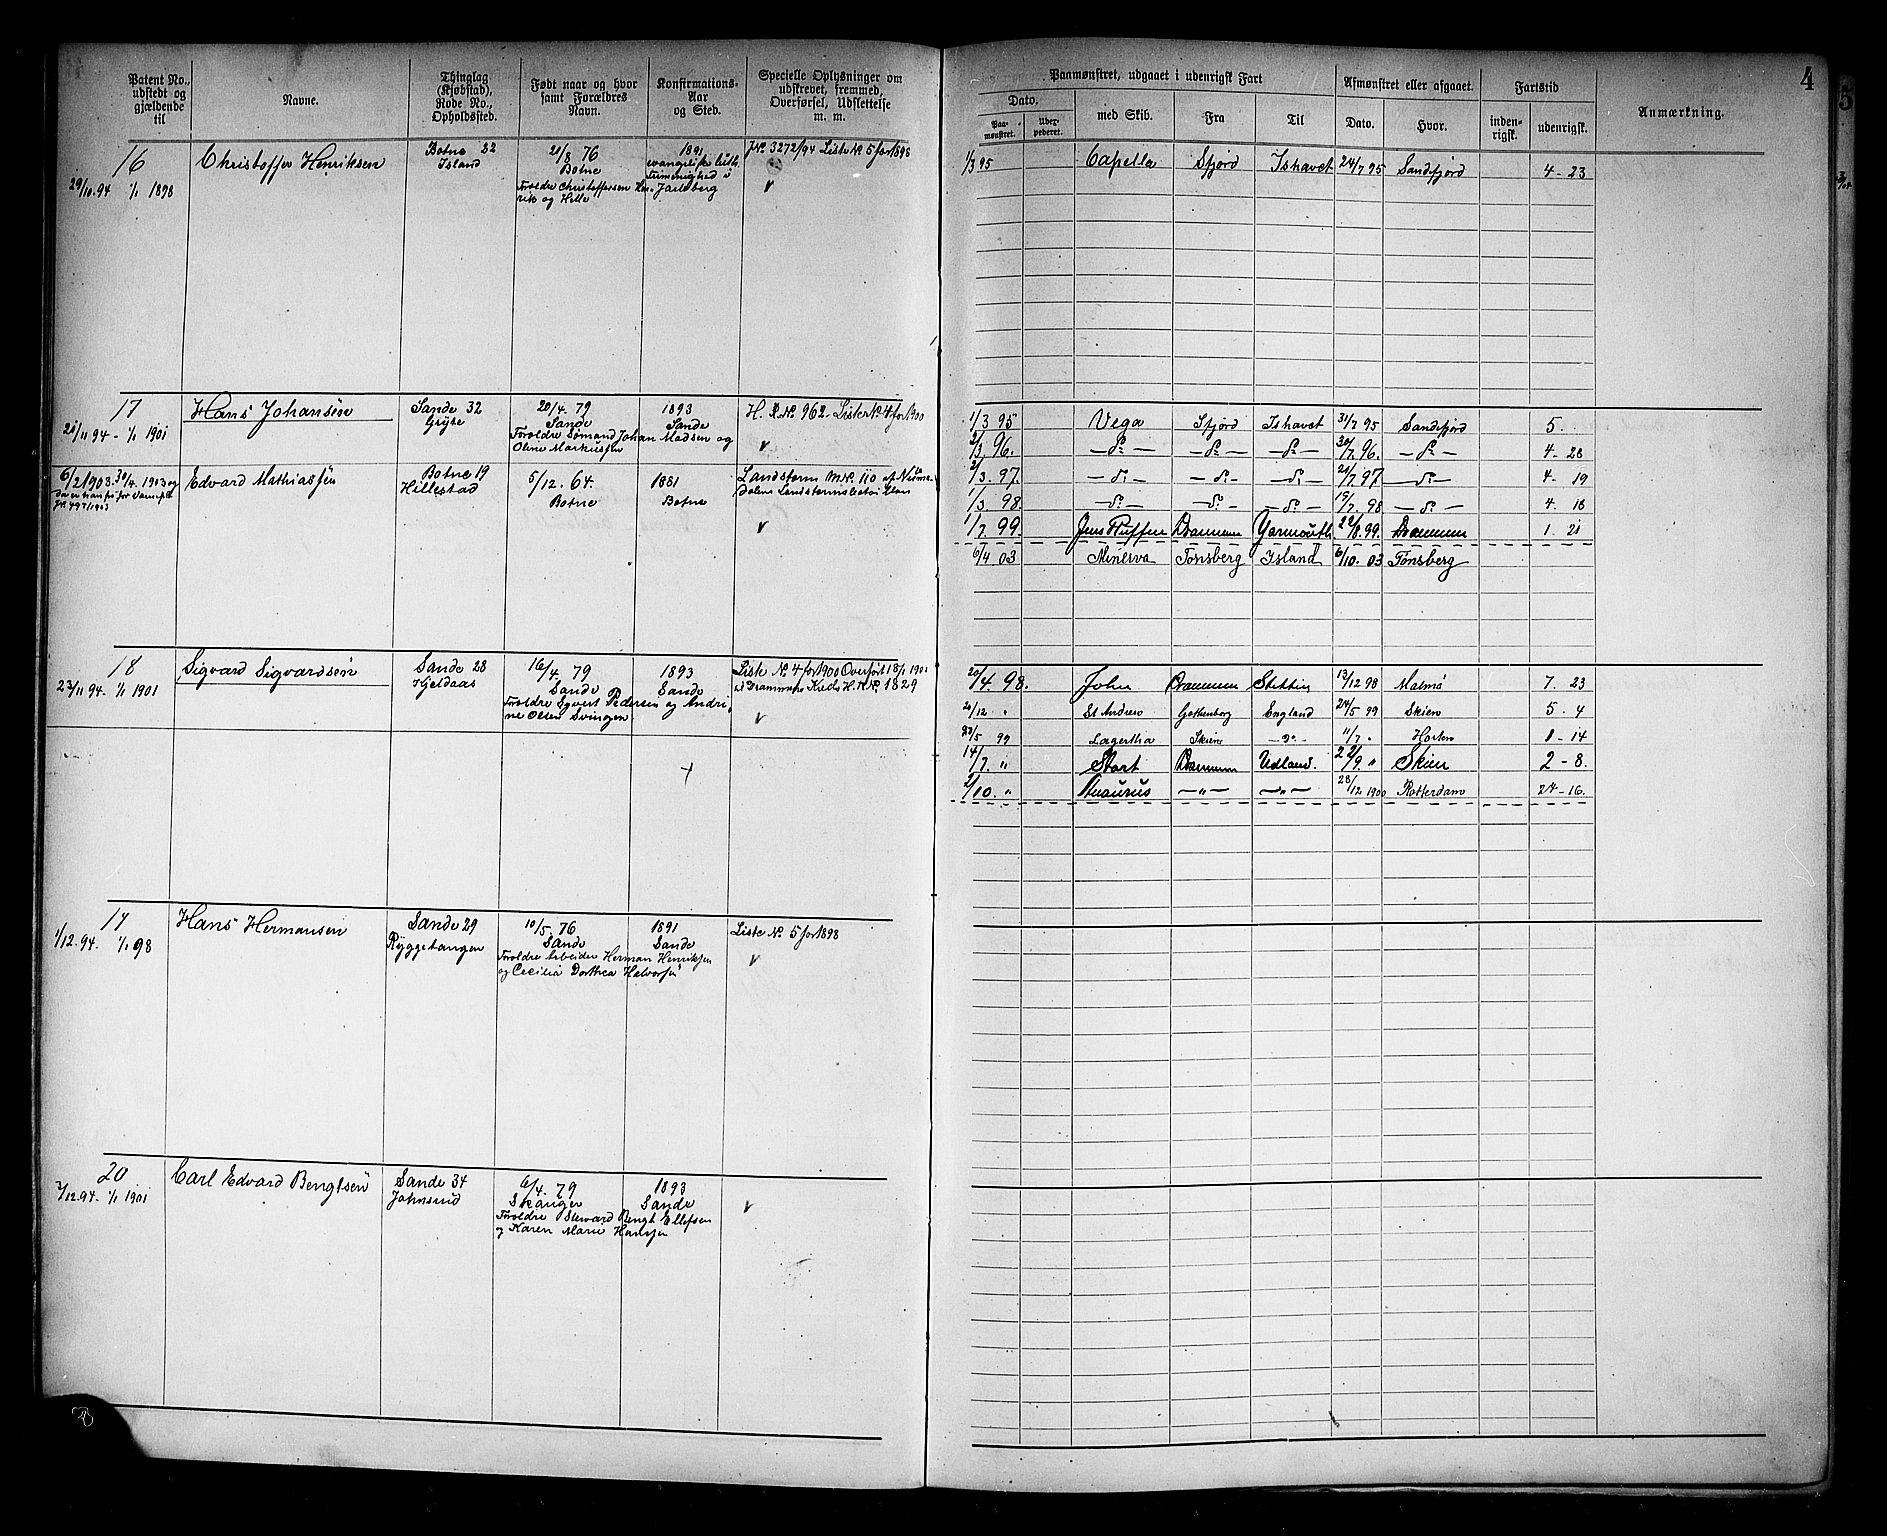 4
5
Patent No., udstedt og gjældende til
Navne.
Thinglag (Kjøbstad), Rode No., Opholdssted.
Født naar og hvor samt Forældres Navn.
Konfirmations- Aar og Sted.
Specielle Oplysninger om udskrevet, fremmed, Overførsel, Udslettelse m. m.
Paamønstret, udgaaet i udenrigsk Fart
Afmønstret eller afgaaet.
Fartstid
Anmærkning.
Dato.
Paa- mønstret.
med Skib.
Fra
Til
Dato.
Hvor.
inden- rigsk.
udenrigsk.
16
29/10.94 1/1 1898
Christoffer Henriksen
Botne 32
Island
21/8 76
Botne
Foreldre Christoffersen Hen-
rik og Helle
1891
evangelisk luth.
frimenighed i
Jarlsberg
J.No. 3272/94 Liste No 5 for 1898
1/3 95 Capella Sfjord Ishavet 24/7 95 Sandefjord 4-23
17
21/11 94 - 1/1 1901
Hans Johansen
Sande 32
20/4. 79
Sande
Foreldre Sømand Johan Madsen og
Oline Markussen
1893
Sande
H. R. No. 962. Liste No. 4 for 1900
1/3 95 Vega Sfjord Ishavet 31/7 95 Sandefjord 5.
2/3 96. — do — — do — — do — 30/7 96. — do — 4-28
2/3. 97 — do — — do — — do — 21/7 97 — do — 4-19
1/3 98. — do — — do — — do — 19/7. 98 — do — 4.18
1/7. 99 Drammen Yarmouth 22/8. 99. Drammen 1.21
6/2 1903. 30/4. 1903 og
Edvard Mathiassen
Botne 19
Hillestad
5/12. 64
Botne
1881
Botne
Landstorm M.No. 110
6/4 03 Minerva Tønsberg Island 6/10. 03 Tønsberg
18
23/11 94. 1/1 1901
Sigvard Sigvardsen
Sande 28
Hjeldaas
16/4. 79
Sande
Foreldre Syvert Pedersen og Andri-
ne Olsen Svingen
1893
Sande
Liste No. 4 for 1900 Overført 18/1 1901
til Drammens Kreds H.R.No. 1829
20/4. 98. John Drammen Stettin 13/12 98 Malmø 7. 23
21/12 " St Andrew Gothenborg England 24/5 99 Skien 5.4
23/5 99 Lagertha Skien — do — 11/7 " Horten 1-14
14/7. " Start Drammen Udland. 22/9. " Skien 2-8.
2/10. " — " — — " — 28/12 1900 Rotterdam 24-16.
19
1/12.94. 1/1 98
Hans Hermansen
Sande 29
Ryggetangen
10/5. 76
Sande
Foreldre Arbeider Herman Henriksen
og Cecilia Dorthea Halvorsen
1891
Sande
Liste No. 5 for 1898
20
3/12.94. 1/1 1901
Carl Edvard Bengtsen
Sande 34
Johnsrud
6/4. 79
Skanger
Foreldre Steward Bengt Ellefsen
og Karen Marie Hansen
1893
Sande